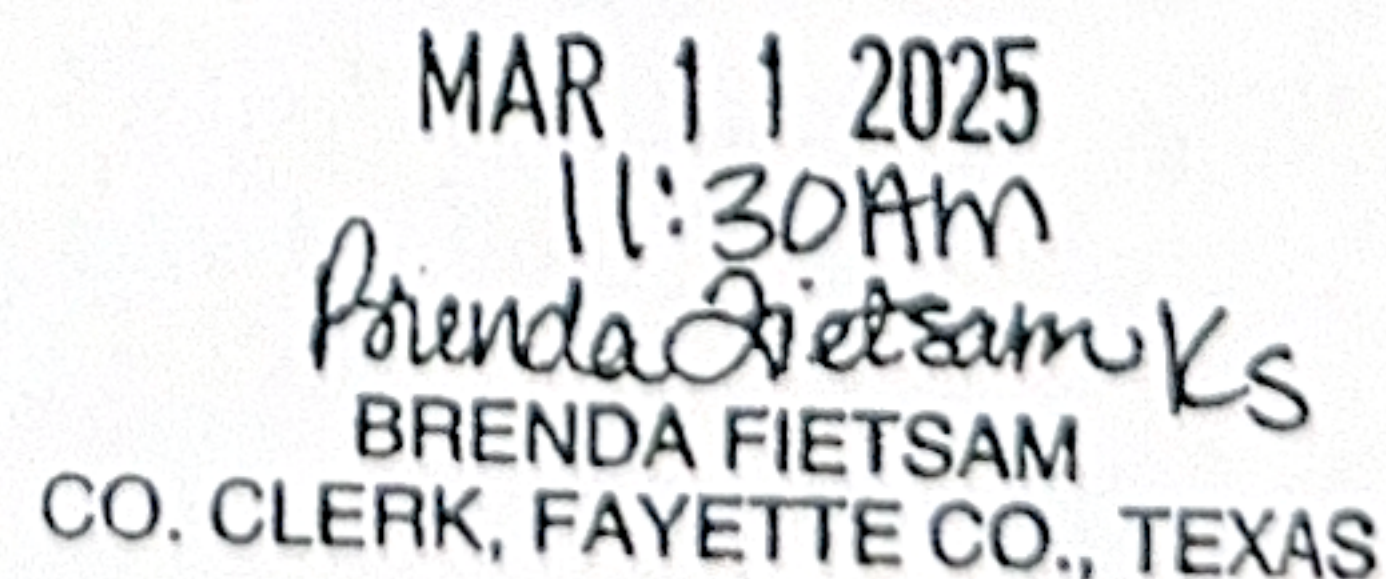 MAR 11 2025
11:30AM
Brenda Fietsam KS
BRENDA FIETSAM
CO. CLERK, FAYETTE CO., TEXAS